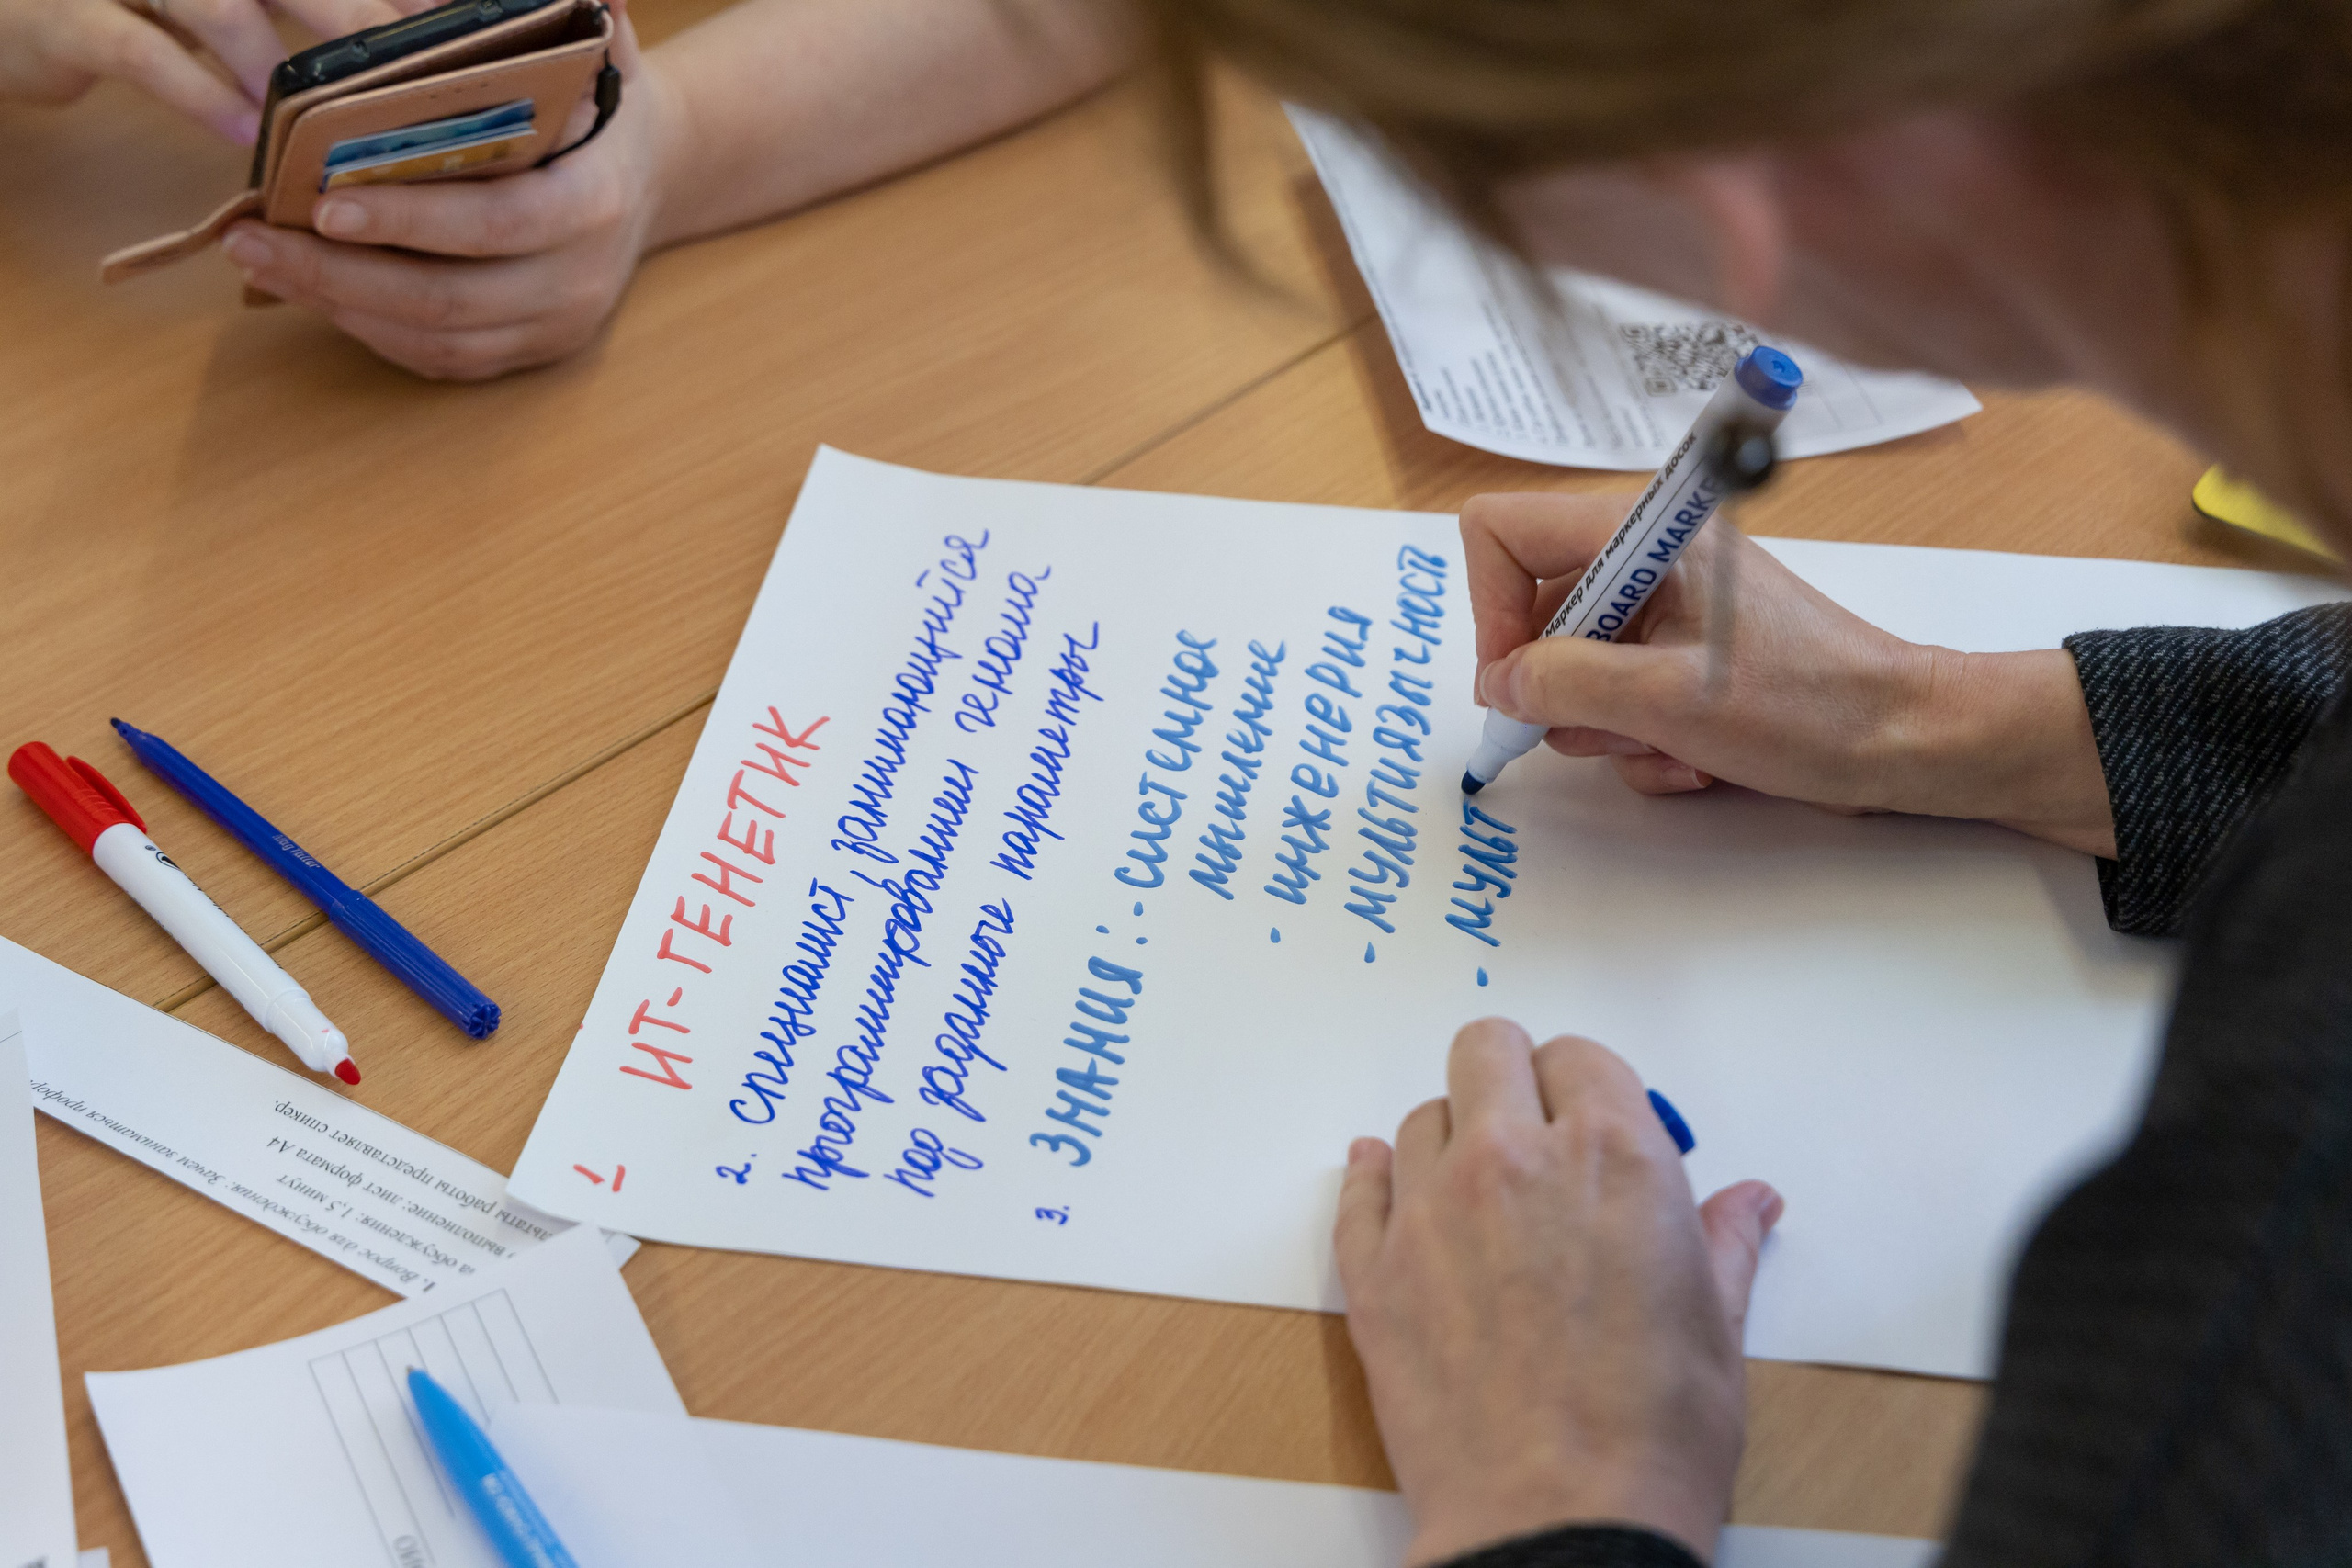 1 ИТ-ГЕНЕТИК
2. Специалист занимающийся
программировании генома
под заданные параметры
3. ЗНАНИЯ: - системное
мышление
- инженерия
- мультиязычность
- мульт
Маркер для маркерных досок
BOARD MARKE
1. Вопрос для обсуждения: Зачем заниматься профор
обсуждения: 1,5 минут
выполнение: лист формата А4
работы представляет спикер.